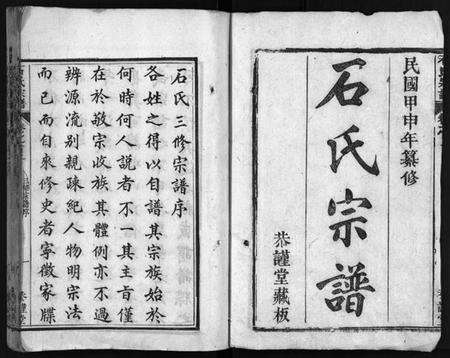 民國甲申年纂修
石氏宗譜
恭謹堂藏板
石氏三修宗譜序
各姓之得以自譜其宗族始於
何時何人說者不一其主旨僅
在於敬宗收族其體例亦不過
辨源流別親疎紀人物明宗法
而已而自來修史者寧徵家牒